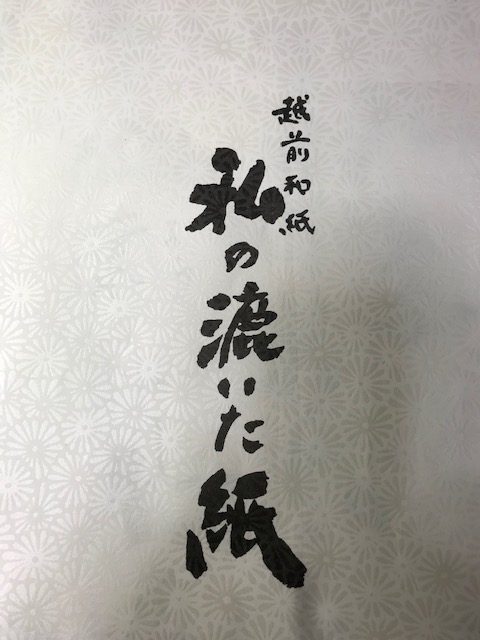 越前和紙
私の漉いた紙